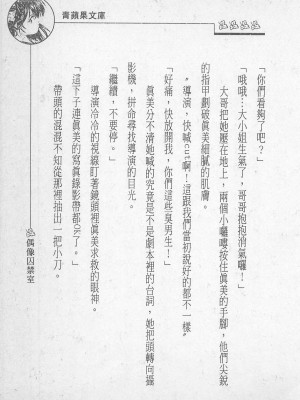 青蘋果文庫
「你們看夠了吧？」
「哦哦…大小姐生氣了，哥哥抱抱消氣囉！」
大哥把她壓在地上，兩個小囉嘍按住眞美的手腳，他們尖銳
的指甲劃破眞美細膩的肌膚。
〝導演，快喊cut啊！這跟我們當初說好的都不一樣〞
「好痛，快放開我，你們這些臭男生！」
眞美分不清她喊的究竟是不是劇本裡的台詞，她把頭轉向攝
影機，拼命尋找導演的目光。
「繼續，不要停。」
導演冷冷的視線盯著鏡頭裡眞美求救的眼神。
「這下子連眞美的寫眞錄影帶都OK了。」
帶頭的混混不知從那裡抽出一把小刀。
偶像囚禁室